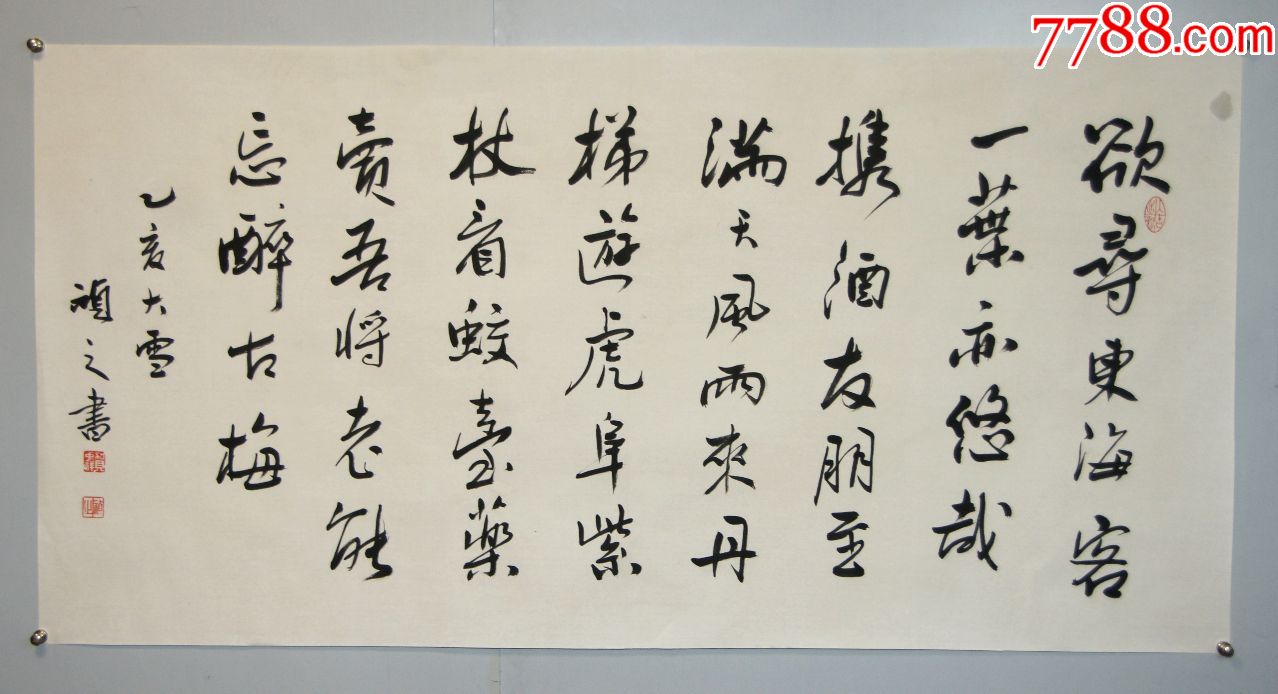 欲尋東海客
一葉亦悠哉
携酒友朋至
满天風雨來丹
梯遊虎阜紫
杖看蛟臺藥
賣吾將老能
忘醉古梅
乙亥大雪
禎之書
7788.com